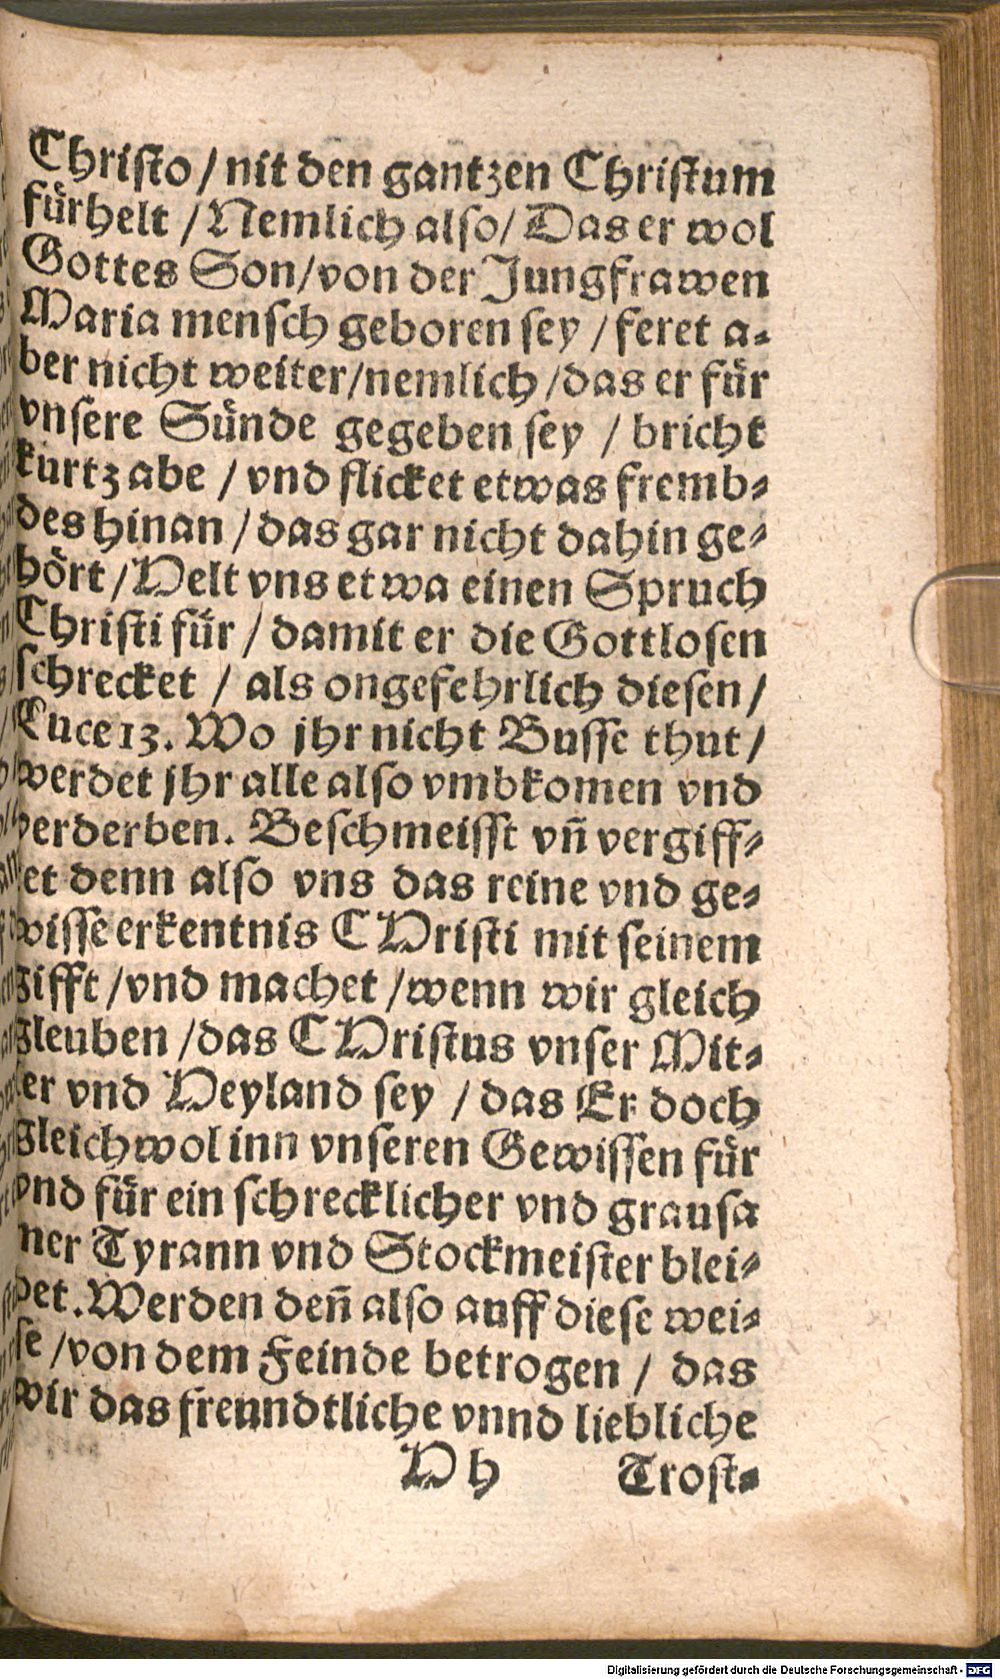 Christo / nit den gantzen Christum
fürhelt / Nemlich also / Das er wol
Gottes Son / von der Jungfrawen
Maria mensch geboren sey / feret a-
ber nicht weiter / nemlich / das er für
vnsere Sünde gegeben sey / bricht
kurtz abe / vnd flicket etwas fremb-
des hinan / das gar nicht dahin ge-
hört / Helt vns etwa einen Spruch
Christi für / damit er die Gottlosen
schrecket / als ongefehrlich diesen /
Luce 13. Wo jhr nicht Busse thut /
werdet jhr alle also vmbkomen vnd
verderben. Beschmeisst vñ vergiff-
et denn also vns das reine vnd ge-
wisse erkentnis CHristi mit seinem
gifft / vnd machet / wenn wir gleich
gleuben / das CHristus vnser Mit-
ler vnd Heyland sey / das Er doch
gleichwol inn vnseren Gewissen für
vnd für ein schrecklicher vnd grausa
mer Tyrann vnd Stockmeister blei-
bet. Werden deñ also auff diese wei-
se / von dem Feinde betrogen / das
wir das freundtliche vnnd liebliche
H h Trost-
Digitalisierung gefördert durch die Deutsche Forschungsgemeinschaft - DFG